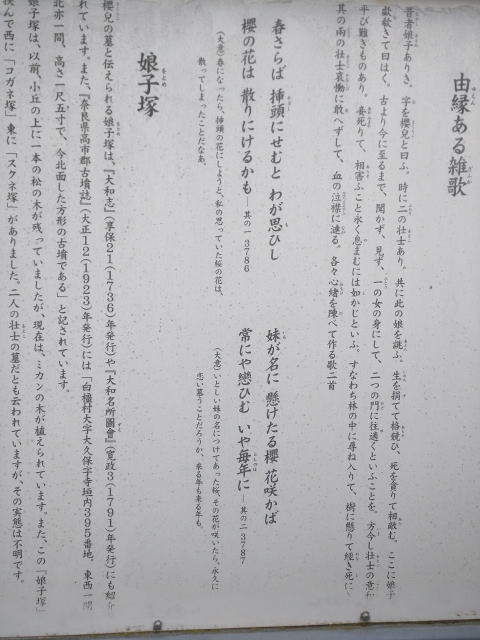 由縁ある雑歌
昔者娘子ありき。字を櫻兒と曰ふ。時に二の壮士あり。共に此の娘を誂ふ。生を捐てて格競ひ、死を貪りて相敵む。ここに娘子
歔欷きて曰はく。古より今に至るまで、聞かず、見ず、一の女の身にして、二つの門に往適くといふことを。方今し壮士の意和
平び難きものあり。妾死りて、相害ふこと永く息まむには如かじといふ。すなわち林の中に尋ね入りて、樹に懸りて経き死に
其の両の壮士哀慟に敢へずして、血の泣襟に漣る。各々心緒を陳べて作る歌二首
春さらば 挿頭にせむと わが思ひし
櫻の花は 散りにけるかも ―其の一 3786
(大意)春になったら、挿頭の花にしようと、私の思っていた桜の花は、
散ってしまったことだなあ。
妹が名に 懸けたる櫻 花咲かば
常にや戀ひむ いや毎年に ―其の二 3787
(大意)いとしい妹の名につけてあった桜、その花が咲いたら、永久に
恋い慕うことだろうか、来る年も来る年も。
娘子塚
櫻兒の墓と伝えられる娘子塚は、『大和志』(享保21(1736)年発行)や『大和名所圖會』(寛政3(1791)年発行)にも紹介
れています。また、『奈良県高市郡古墳誌』(大正12(1923)年発行)には「白橿村大字大久保字寺垣内395番地、東西一間
北亦一間、高さ一尺五寸で、今北面した方形の古墳である」と記されています。
娘子塚は、以前、小丘の上に一本の松の木が残っていましたが、現在は、ミカンの木が植えられています。また、この「娘子塚」
挟んで西に「コガネ塚」東に「スクネ塚」がありました。二人の壮士の墓だとも云われていますが、その実態は不明です。